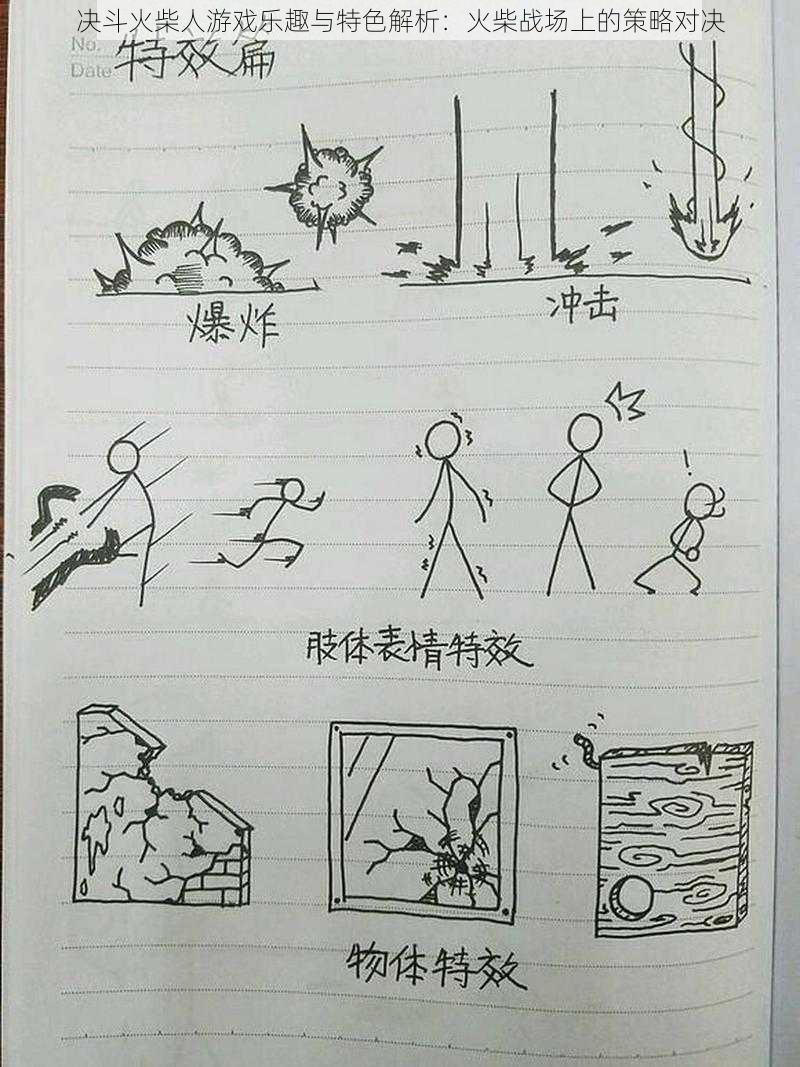 决斗火柴人游戏乐趣与特色解析：火柴战场上的策略对决
No.
Date
特效篇
爆炸
冲击
肢体表情特效
物体特效